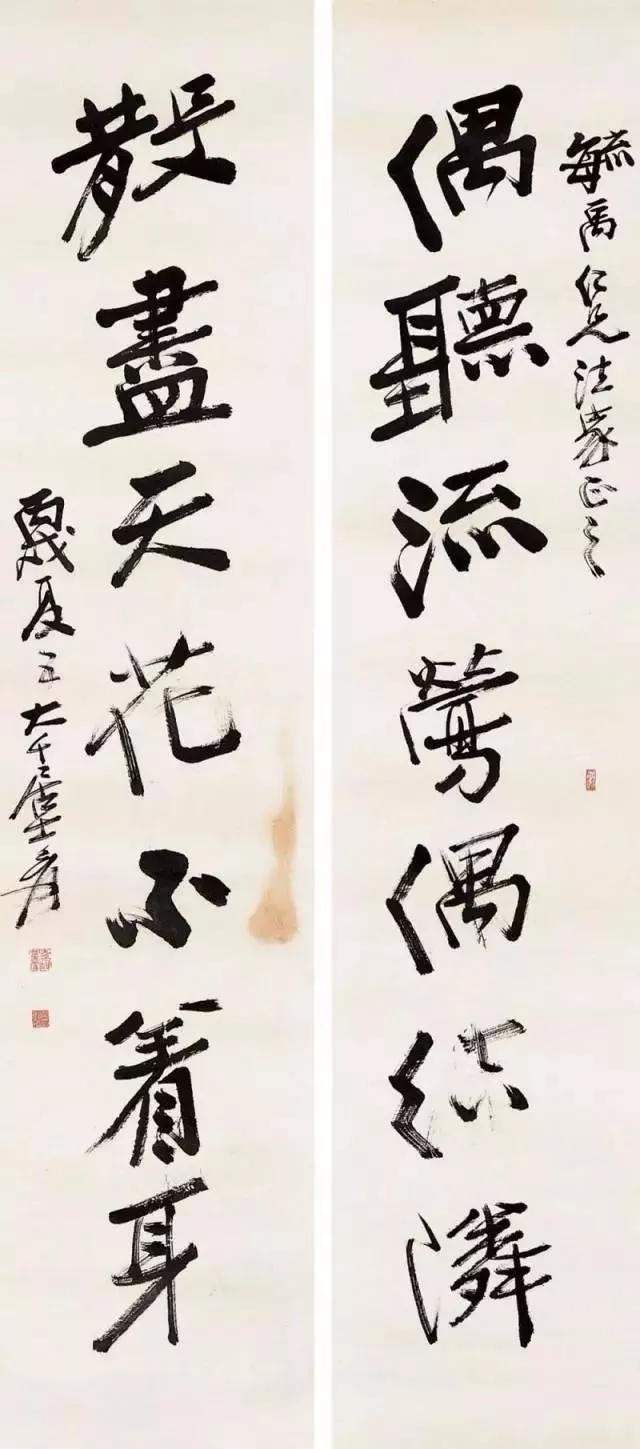 毓禹仁兄法家正之
偶聽流鶯偶結隣
散盡天花不着身
丙戌夏五大千居士爰